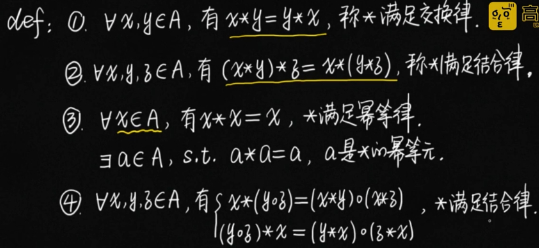 def: ①. ∀x,y∈A, 有 x*y=y*x, 称*满足交换律.
高
②. ∀x,y,z∈A, 有 (x*y)*z=x*(y*z), 称*满足结合律.
③. ∀x∈A, 有x*x=x, *满足幂等律.
∃a∈A, s.t. a*a=a, a是*的幂等元.
④. ∀x,y,z∈A, 有{x*(y∘z)=(x*y)∘(x*z), *满足结合律.
(y∘z)*x=(y*x)∘(z*x)